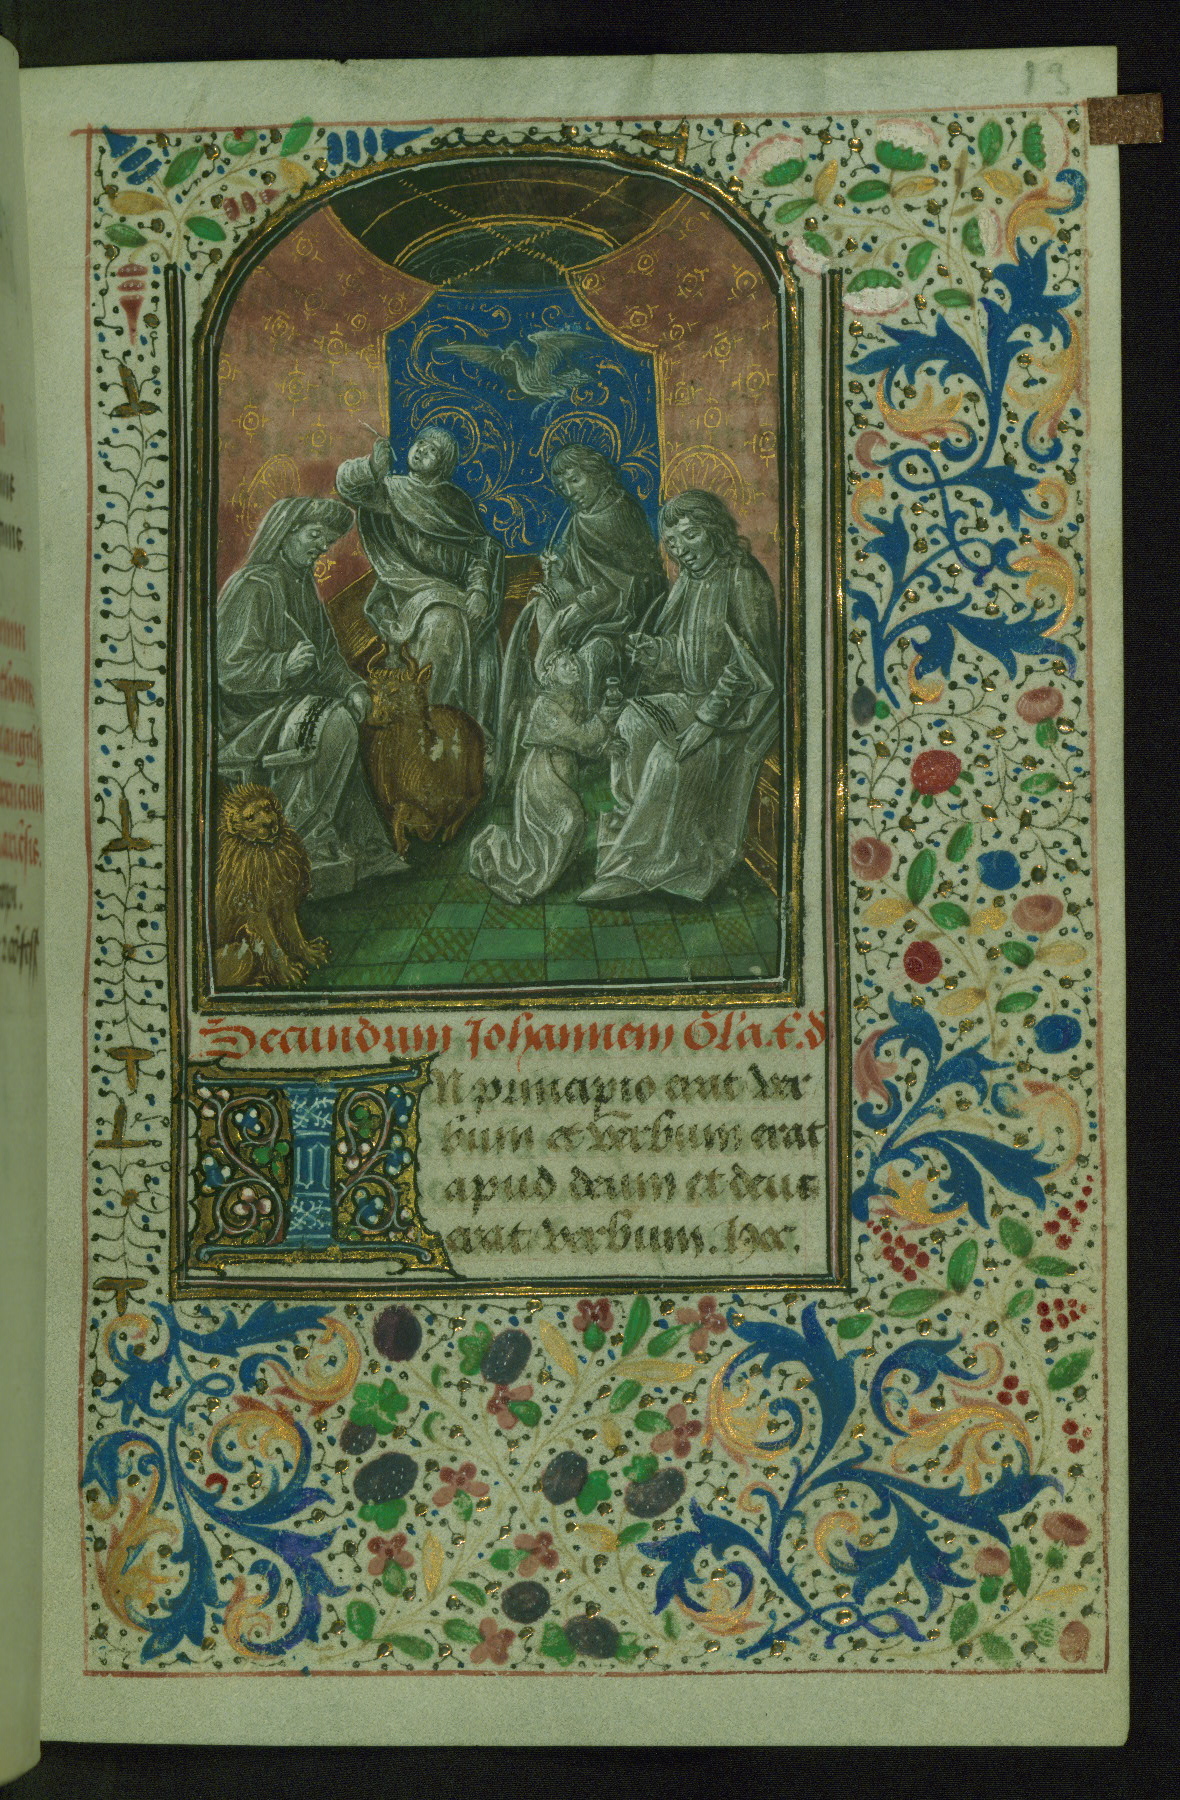 13
Secundum Johannem Gl'a. t. d
IN principio erat ver
bum et verbum erat
apud deum et deus
erat verbum. hoc